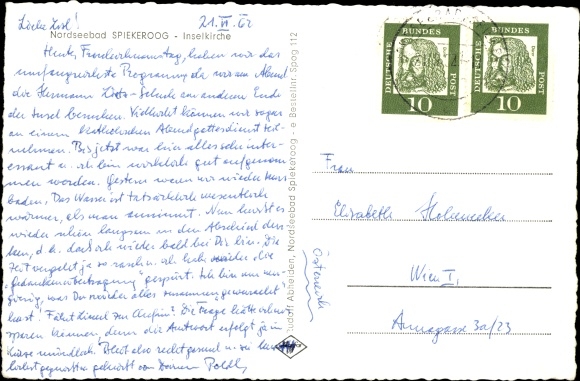 Liebe Lisl!
21.VI.62
Nordseebad SPIEKEROOG - Inselkirche
Heute, Fronleichnamstag, haben wir das
umfangreichste Programm, da wir am Abend
die Hermann Lietz-Schule am anderen Ende
der Insel besuchen. Vielleicht können wir sogar
an einem katholischen Abendgottesdienst teil-
nehmen. Bis jetzt war hier alles sehr inter-
essant u. ich bin wirklich gut aufgenom
men worden. Gestern waren wir wieder
baden. Das Wasser ist tatsächlich wesentlich
wärmer, als man annimmt. Nun heißt es
wieder schön langsam an den Abschied den
ken, d.h. daß ich wieder bald bei Dir bin. Die
Zeit vergeht ja so rasch. Ich habe wieder die
„Gedankenübertragung" gespürt. Ich bin
gierig, was Du wieder alles zusammen
hast! Fährt
sparen können, denn die Antwort erfolgt ja in
Kürze mündlich. Bleib also recht gesund u. sei
herzlichst gegrüßt von Deinem Poldl
Rudolf Abheiden, Nordseebad Spiekeroog - e Bestellnr. Spog 112
DEUTSCHE BUNDES POST
10
DEUTSCHE BUNDES POST
10
Frau
Elisabeth Hohenecker
Wien I,
Annagasse 3a/23
Österreich